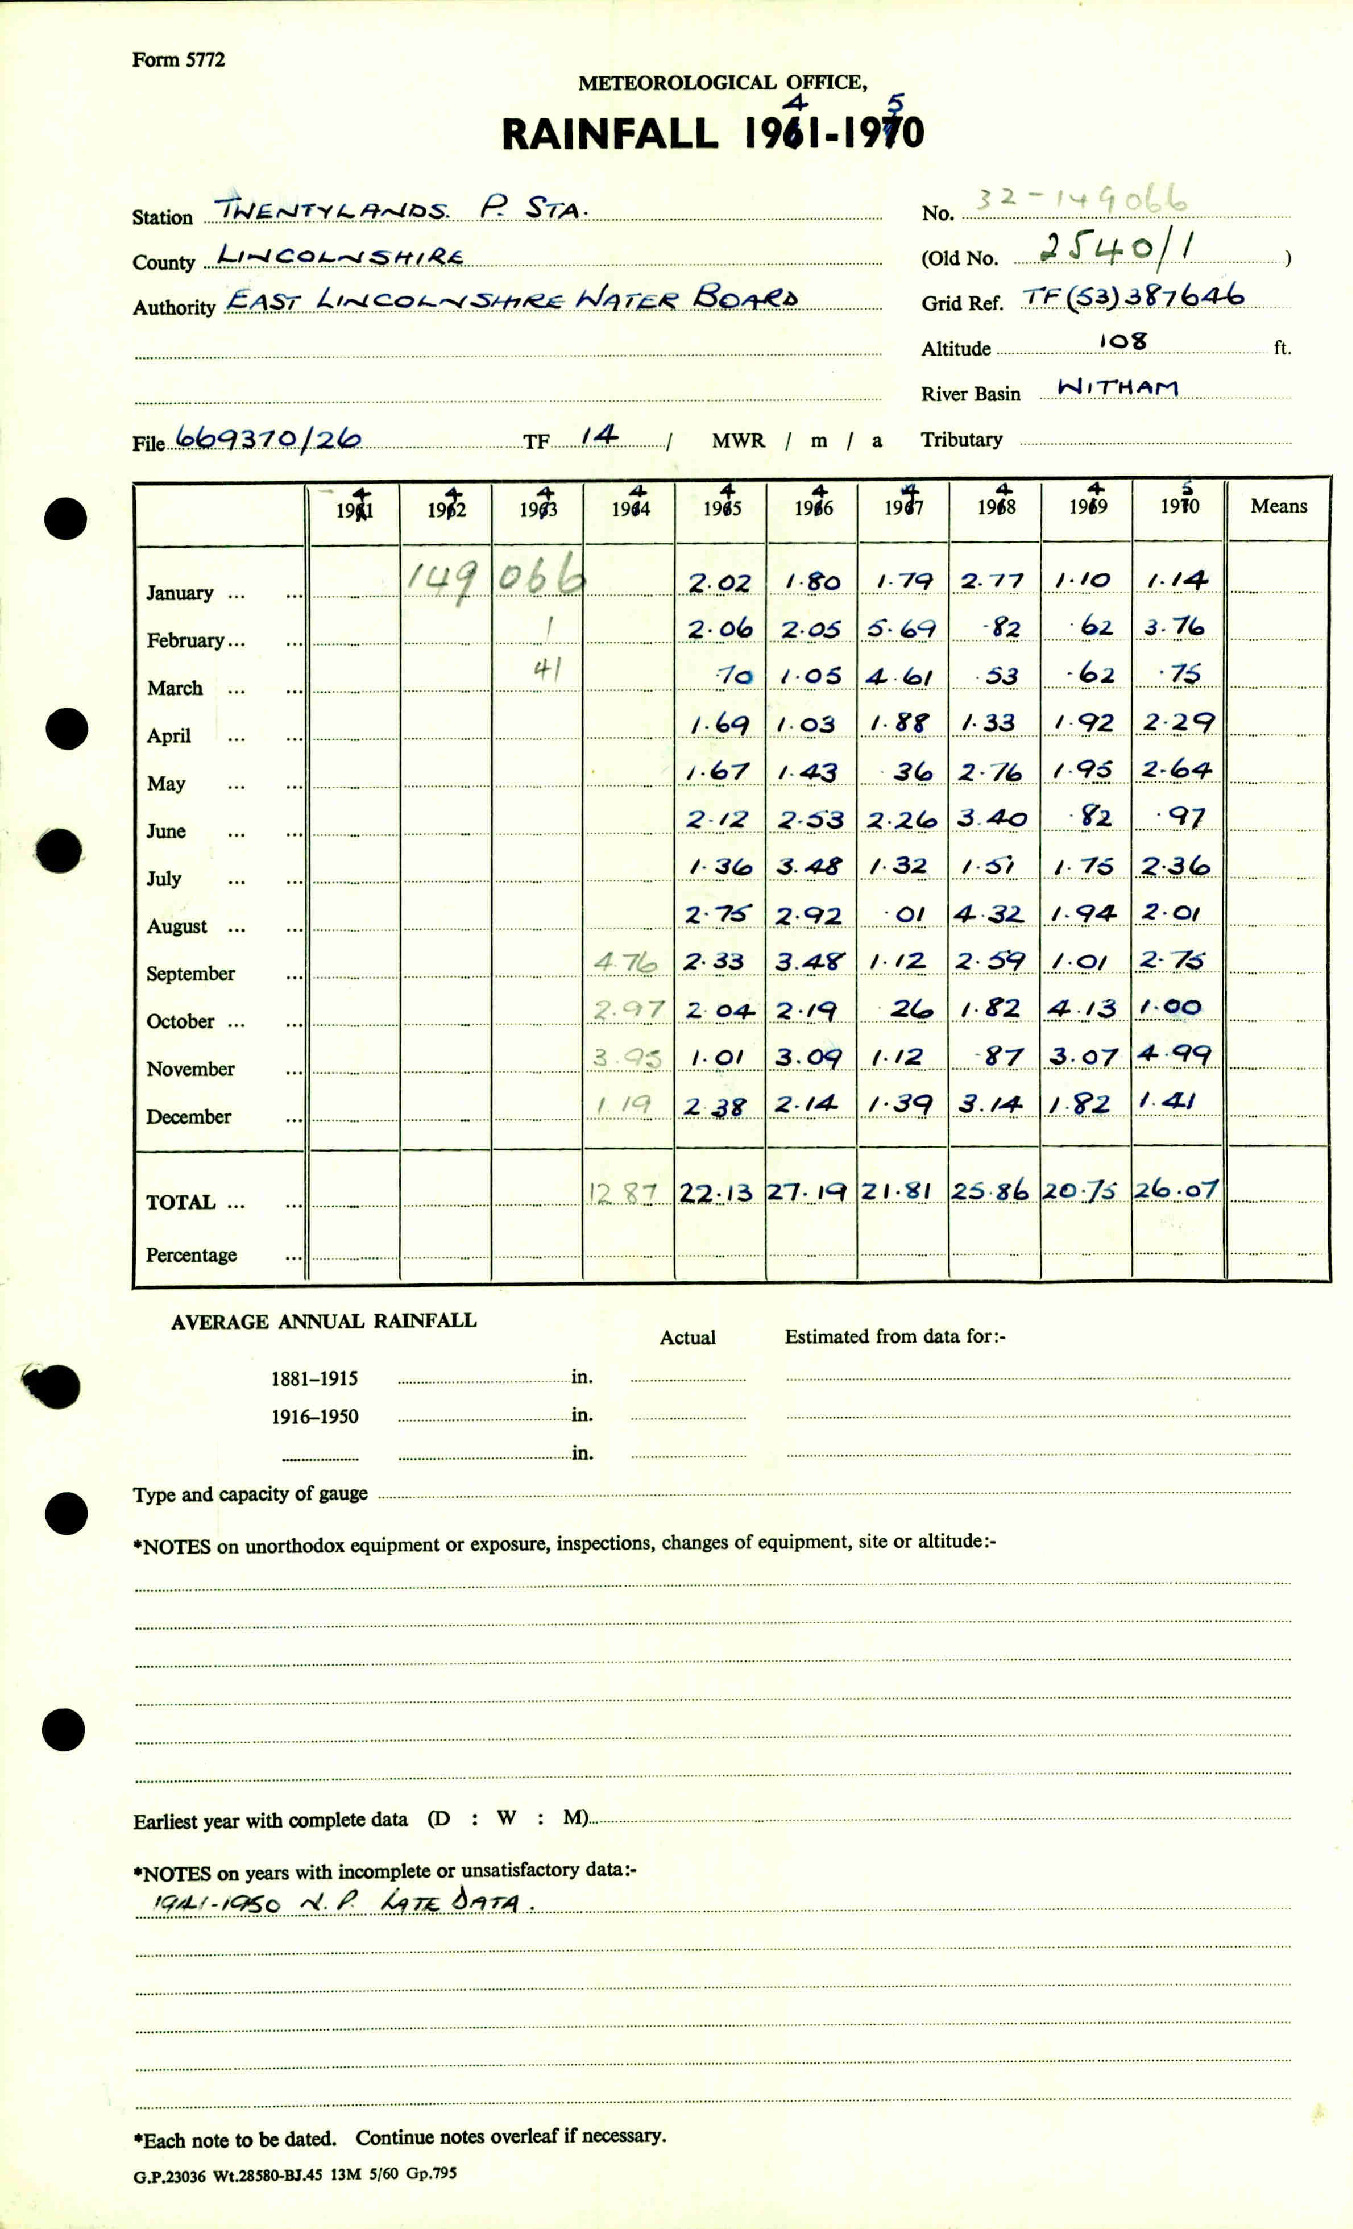 Form 5772
METEOROLOGICAL OFFICE,
RAINFALL 1941-1950
Station TWENTYLANDS. P. STA.
No. 32-149066
County LINCOLNSHIRE
(Old No. 2540/1 )
Authority EAST LINCOLNSHIRE WATER BOARD
Grid Ref. TF(53)387646
Altitude 108 ft.
River Basin WITHAM
File 669370/26 TF 14 / MWR / m / a Tributary
1941 1942 1943 1944 1945 1946 1947 1948 1949 1950 Means
January ... ... 149 066 2.02 1.80 1.79 2.77 1.10 1.14
February... ... 1 2.06 2.05 5.69 .82 .62 3.76
March ... ... 41 .70 1.05 4.61 .53 .62 .75
April ... ... 1.69 1.03 1.88 1.33 1.92 2.29
May ... ... 1.67 1.43 .36 2.76 1.95 2.64
June ... ... 2.12 2.53 2.26 3.40 .82 .97
July ... ... 1.36 3.48 1.32 1.51 1.75 2.36
August ... ... 2.75 2.92 .01 4.32 1.94 2.01
September ... 4.76 2.33 3.48 1.12 2.59 1.01 2.75
October ... ... 2.97 2.04 2.19 .26 1.82 4.13 1.00
November ... 3.95 1.01 3.09 1.12 .87 3.07 4.99
December ... 1.19 2.38 2.14 1.39 3.14 1.82 1.41
TOTAL ... ... 12.87 22.13 27.19 21.81 25.86 20.75 26.07
Percentage ...
AVERAGE ANNUAL RAINFALL
Actual Estimated from data for:-
1881–1915 in.
1916–1950 in.
in.
Type and capacity of gauge
*NOTES on unorthodox equipment or exposure, inspections, changes of equipment, site or altitude:-
Earliest year with complete data (D : W : M)
*NOTES on years with incomplete or unsatisfactory data:-
1941-1950 N.P. LATE DATA.
*Each note to be dated. Continue notes overleaf if necessary.
G.P.23036 Wt.28580-BJ.45 13M 5/60 Gp.795